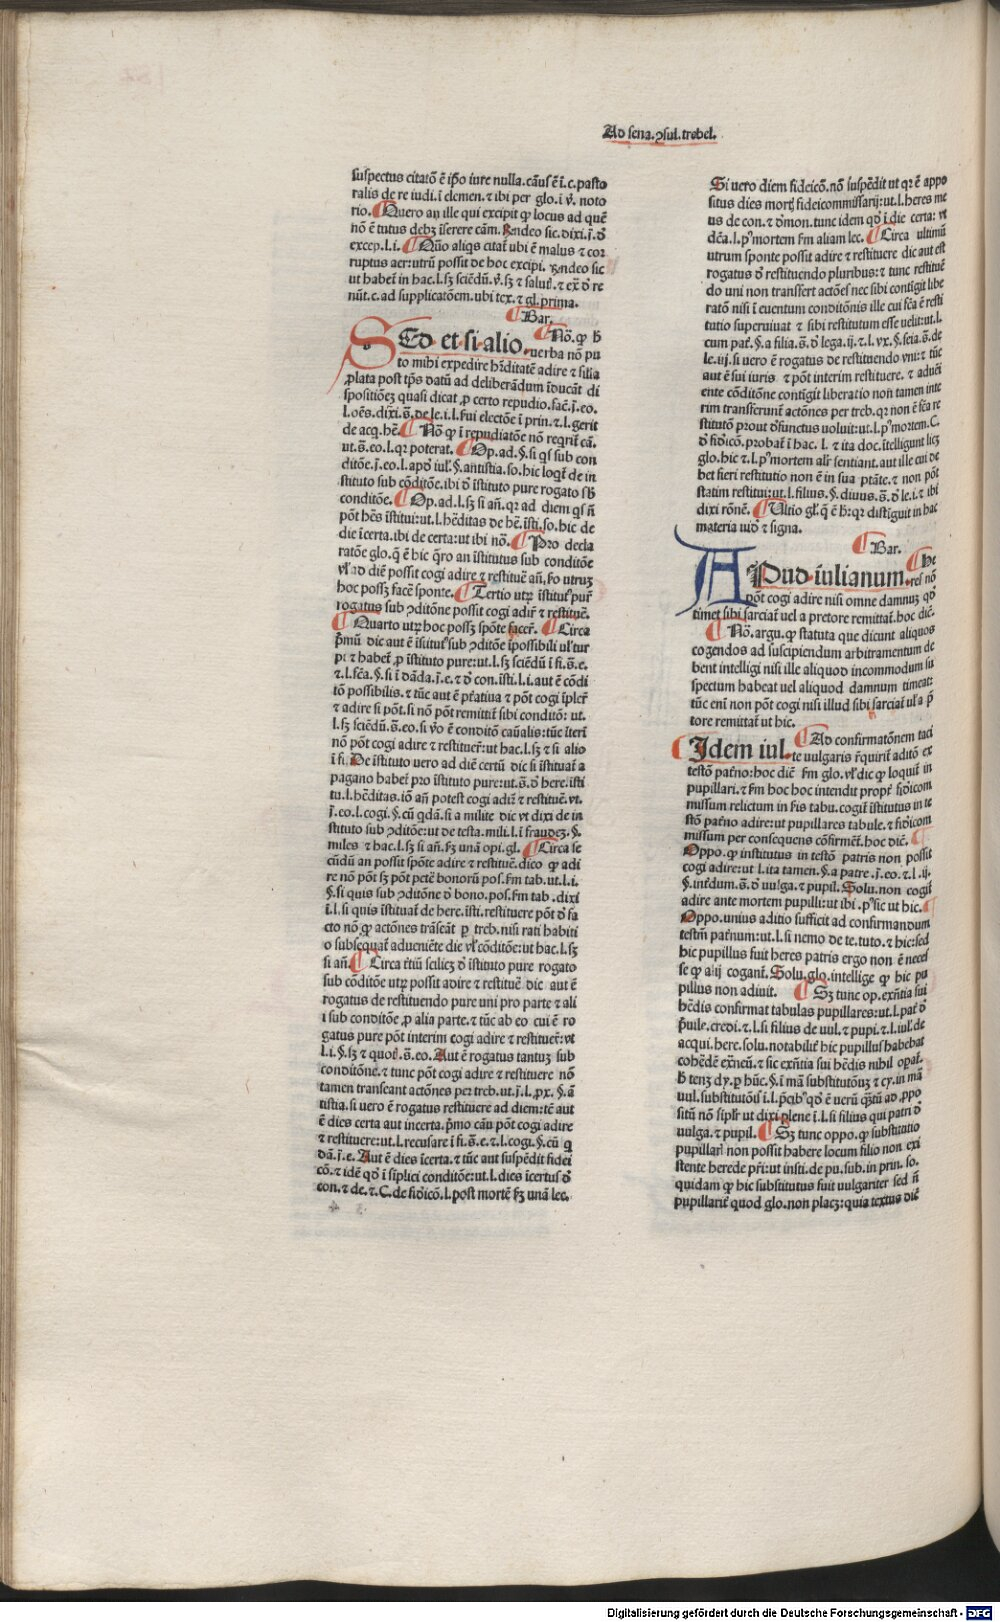 Ad sena. ꝯsul. trebel.
suspectus citatō ē ip̄o iure nulla. cāus ē ī. c. pasto
ralis de re iudi. ī clemen. ⁊ ibi per glo. ī ꝟ. noto
rio. ¶ Quero an ille qui excipit ꝙ locus ad quē
nō ē tutus debꝫ īserere cām. Rn̄deo sic. dixi. j. ꝺ̄
excep. l. i. ¶ Quō aliqs citat̄ ubi ē malus ⁊ cor
ruptus aer: utrū possit de hoc excipi. Rn̄deo sic
ut habet̄ in hac. l. sꝫ sciēdū. ꝟ. sꝫ ⁊ salub̄. ⁊ ex̄ ꝺ̄ re
nūt. c. ad supplicatōem. ubi tex. ⁊ gl. prima.
¶ Bar.
SEd et si alio. ¶ Nō. ꝙ h̄
verba nō pu
to mihi expedire hr̄ditatē adire ⁊ silia
ꝓlata post tp̄s datū ad deliberādum īducāt di
spositiōeꝫ quasi dicat ꝓ certo repudio. fac̄. j. eo.
l. oēs. dixi. s̄. de le. i. l. fui electōe ī prin. ⁊. l. gerit
de acq. hē. ¶ Nō ꝙ ī repudiatōe nō reqrit̄ cā.
ut. s̄. eo. l. qꝛ poterat. ¶ Op. ad. §. si qs sub con
ditōe. j. eo. l. apd̄ iul. §. antistia. so. hic loqt̄ de in
stituto sub cōditōe. ibi ꝺ̄ īstituto pure rogato sb̄
conditōe. ¶ Op. ad. l. sꝫ si añ. qꝛ ad diem qs n̄
pōt hēs īstitui: ut. l. hēditas de hē. īsti. so. hic de
die īcerta. ibi de certa: ut ibi nō. ¶ Pro decla
ratōe glo. q̄ ē hic q̄ro an īstitutus sub conditōe
vl̓ ad diē possit cogi adire ⁊ restituē añ. sō utruꝫ
hoc possꝫ facē sponte. ¶ Tertio utꝝ īstitutꝰ pur̄
rogatus sub ꝯditōne possit cogi adir̄ ⁊ restituē.
¶ Quarto utꝝ hoc possꝫ spōte facer̄. ¶ Circa
p̄mū dic aut ē īstitutꝰ sub ꝯditōe īpossibili
⁊ habet̄ ꝓ īstituto pure: ut. l. sꝫ sciēdū ī fi. s̄. e.
⁊. l. fc̄a. §. si ī dāda. j. e. ⁊ ꝺ̄ con. īsti. l. i. aut ē cōdi
tō possibilis. ⁊ tūc aut ē pt̄atiua ⁊ pōt cogi īpler̄
⁊ adire si pōt. si nō pōt remittit̄ sibi conditō: ut.
l. sꝫ sciēdū. s̄. eo. si ꝟo ē conditō cāualis: tūc
nō pōt cogi adire ⁊ restituer̄: ut hac. l. sꝫ ⁊ si alio
ī fi. De īstituto vero ad diē certū dic si īstituat̄ a
pagano habet̄ pro īstituto pure: ut. s̄. ꝺ̄ here. īsti
tu. l. hēditas. iō añ potest cogi adir̄ ⁊ restituē. vt.
j. eo. l. cogi. §. cū qdā. si a milite dic vt dixi de in
stituto sub ꝯditōe: ut de testa. mili. l. ī fraudeꝫ. §.
miles ⁊ hac. l. sꝫ si añ. ẜꝫ unā opi. gl. ¶ Circa se
cūdū an possit spōte adire ⁊ restituē. dico ꝙ adi
re nō pōt sꝫ pōt petē bonoꝝ pos. ẜm tab. ut. l. i.
§. si quis sub ꝯditōne ꝺ̄ bono. pos. ẜm tab. dixi
ī. l. si quis īstituat̄ de here. īsti. restituere pōt ꝺ̄ fa
cto nō ꝙ actōnes trāseāt p̱ treb. nisi rati habiti
o subsequat̄ adueniēte die vl̓ cōditōe: ut hac. l. sꝫ
si añ. ¶ Circa t̄tiū scilicꝫ ꝺ̄ īstituto pure rogato
sub cōditōe utꝝ possit adire ⁊ restituē dic aut ē
rogatus de restituendo pure uni pro parte ⁊ ali
i sub conditōe ꝓ alia parte. ⁊ tūc ab eo cui ē ro
gatus pure pōt interim cogi adire ⁊ restituer̄: vt
l. i. §. sꝫ ⁊ quot̄. s̄. eo. Aut ē rogatus tantuꝫ sub
conditōne. ⁊ tunc pōt cogi adire ⁊ restituere nō
tamen transeant actōnes per treb. ut. j. l. ꝓx. §. ā
tistia. si vero ē rogatus restituere ad diem: tē aut
ē dies certa aut incerta. p̄mo cāu pōt cogi adire
⁊ restituere: ut. l. recusare ī fi. s̄. e. ⁊. l. cogi. §. cū q
dā. j. e. Aut ē dies īcerta. ⁊ tūc aut suspēdit fidei
cō. ⁊ idē qd̓ ī siplici conditōe: ut. l. dies īcertus ꝺ̄
con. ⁊ de. ⁊. C. de fid̓icō. l. post mortē ẜꝫ unā lec.
Si vero diem fideicō. nō suspēdit ut qꝛ ē appo
situs dies mortꝭ fideicommissarij: ut. l. heres me
us de con. ⁊ ꝺ̄mon. tunc idem qd̓ ī die certa: vt
dc̄a. l. pꝰ mortem ẜm aliam lec. ¶ Circa ultimū
utrum sponte possit adire ⁊ restituere dic aut est
rogatus ꝺ̄ restituendo pluribus: ⁊ tunc restituē
do uni non transfert actōes nec sibi contigit libe
ratō nisi ī euentum conditōnis ille cui fc̄a ē resti
tutio superuiuat ⁊ sibi restitutum esse uelit: ut. l.
cum pat̄. §. a filia. s̄. ꝺ̄ lega. ij. ⁊. l. vx. §. seia. s̄. de
le. iij. si vero ē rogatus de restituendo vni: ⁊ tūc
aut ē sui iuris ⁊ pōt interim restituere. ⁊ adueī
ente cōditōne contigit liberatio non tamen inte
rim transferunt̄ actōnes per treb. qꝛ non ē fc̄a re
stitutō prout ꝺ̄functus uoluit: ut. l. pꝰ mortem. C.
ꝺ̄ fid̓icō. probat̄ ī hac. l. ⁊ ita doc. ītelligunt licꝫ
glo. hic ⁊. l. pꝰ mortem alr̄ sentiant. aut ille cui de
bet fieri restitutio non ē in sua ptāte. ⁊ non pōt
statim restitui: ut. l. filius. §. diuus. s̄. ꝺ̄ le. i. ⁊ ibi
dixi rōnē. ¶ Ultio gl. q̄ ē h̄: qꝛ distīguit in hac
materia iud̓ ⁊ signa.
¶ Bar.
APud iulianum. ¶ He
res nō
pōt cogi adire nisi omne damnuꝫ qd̓
timet sibi sarciat̄ uel a pretore remittat̄. hoc dic̄.
¶ Nō. argu. ꝙ statuta que dicunt aliquos
cogendos ad suscipiendum arbitramentum de
bent intelligi nisi ille aliquod incommodum su
spectum habeat uel aliquod damnum timeat:
tūc eni non pōt cogi nisi illud sibi sarciat̄ ul̓ a p̄
tore remittat̄ ut hic.
¶ Idem iul. ¶ Ad confirmatōnem taci
te vulgaris r̄quirit̄ aditō ex
testō pat̄no: hoc diē ẜm glo. vl̓ dic ꝙ loquit̄ in
pupillari. ⁊ ẜm hoc hoc intendit propt̄ fid̓icom
missum relictum in s̄is tabu. cogit̄ īstitutus in te
stō pat̄no adire: ut pupillares tabule. ⁊ fid̓icom
missum per consequens cōfirmet̄. hoc diē. ¶
Oppo. ꝙ institutus in testō patris non possit
cogi adire: ut l. ita tamen. §. a patre. j. eo. ⁊. l. ij.
§. int̄dum. s̄. ꝺ̄ uulga. ⁊ pupil. Solu. non cogit̄
adire ante mortem pupilli: ut ibi. pꝰ sic ut hic. ¶
Oppo. unius aditio sufficit ad confirmandum
testm̄ pat̄num: ut. l. si nemo de te. tuto. ⁊ hic: sed
hic pupillus fuit heres patris ergo non ē necess̄
se ꝙ alij cogant̄. Solu. glo. intellige ꝙ hic pu
pillus non adiuit. ¶ Sꝫ tunc op. exñtia sui
hēdis confirmat tabulas pupillares: ut. l. pat̄ ꝺ̄
p̄uile. credi. ⁊. l. si filius de uul. ⁊ pupi. ⁊. l. iul̓. de
acqui. here. solu. notabilit̄ hic pupillus habebat
cohēdē exñeū. ⁊ sic exñtia sui hēdis nihil opat̄.
h̄ tenꝫ dy. p̱ hūc. §. ī mā substitutōuꝫ ⁊ cy. in mā
uul. substitutōis ī. l. p̄cibꝰ qd̓ ē uerū q̄tū ad ꝓpo
sitū nō siplr̄ ut dixi plene ī. l. si filius qui patri ꝺ̄
uulga. ⁊ pupil. ¶ Sꝫ tunc oppo. ꝙ substitutio
pupillaris̄ non possit habere locum filio non exi
stente herede pr̄i: ut insti. de pu. sub. in prin. so.
quidam ꝙ hic substitutus fuit uulgariter sed n̄
pupillarit̄ quod glo. non placꝫ: quia textus dic̄
Digitalisierung gefördert durch die Deutsche Forschungsgemeinschaft - DFG